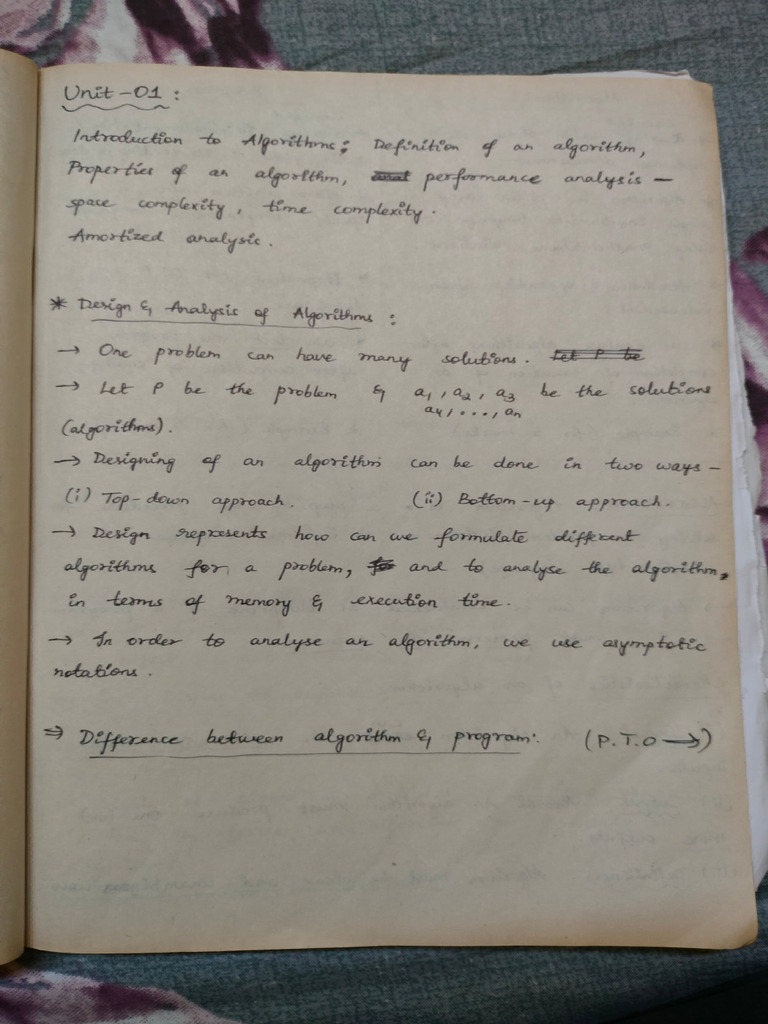 Unit-01 :
Introduction to Algorithms; Definition of an algorithm,
Properties of an algorithm, performance analysis –
space complexity, time complexity.
Amortized analysis.
* Design & Analysis of Algorithms :
→ One problem can have many solutions. Let P be
→ Let P be the problem & a1, a2, a3 be the solutions
a4, ..., an
(algorithms).
→ Designing of an algorithm can be done in two ways –
(i) Top-down approach. (ii) Bottom-up approach.
→ Design represents how can we formulate different
algorithms for a problem, and to analyse the algorithm,
in terms of memory & execution time.
→ In order to analyse an algorithm, we use asymptotic
notations.
⇒ Difference between algorithm & program: (P.T.O →)